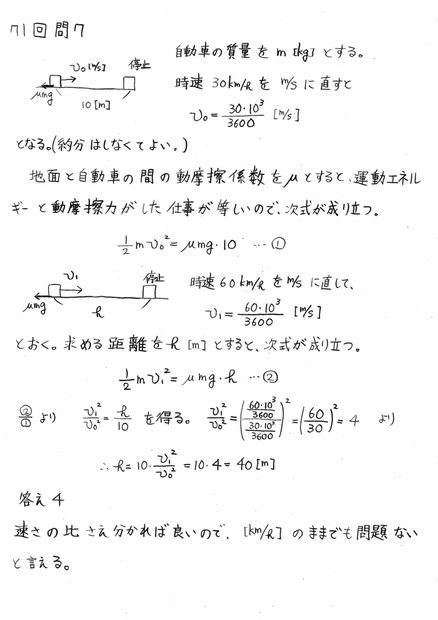 71回問7
自動車の質量をm[kg]とする。
v₀[m/s] 停止
μmg 10[m]
時速30km/hをm/sに直すと
v₀=30・10³/3600 [m/s]
となる。(約分はしなくてよい。)
地面と自動車の間の動摩擦係数をμとすると、運動エネル
ギーと動摩擦力がした仕事が等しいので、次式が成り立つ。
1/2 m v₀² = μmg・10 …①
v₁ 停止
μmg h
時速60km/hをm/sに直して、
v₁=60・10³/3600 [m/s]
とおく。求める距離をh[m]とすると、次式が成り立つ。
1/2 m v₁² = μmg・h …②
②/① より v₁²/v₀² = h/10 を得る。 v₁²/v₀² = ((60・10³/3600)/(30・10³/3600))² = (60/30)² = 4 より
∴ h=10・v₁²/v₀² = 10・4 = 40[m]
答え 4
速さの比さえ分かれば良いので、[km/h]のままでも問題ない
と言える。